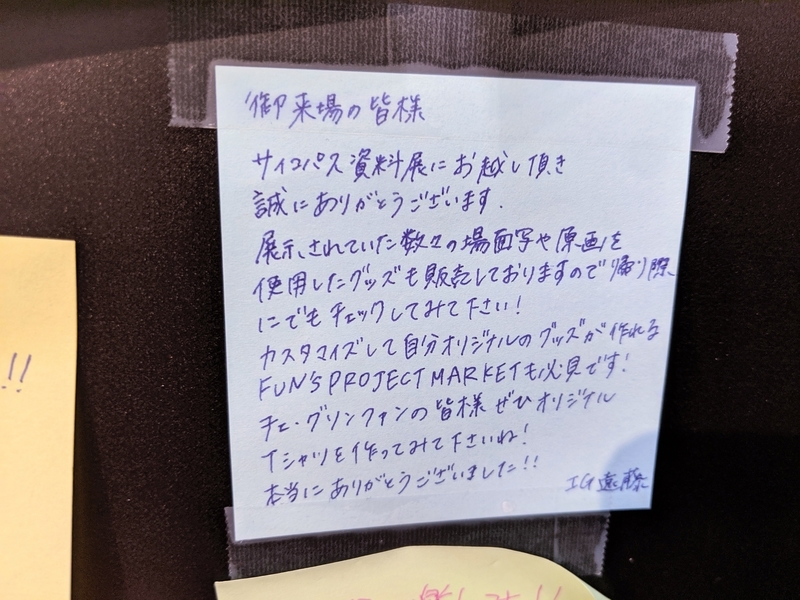 御来場の皆様
サイコパス資料展にお越し頂き
誠にありがとうございます.
展示されていた数々の場面写や原画を
使用したグッズも販売しておりますので帰り際
にでもチェックしてみて下さい!
カスタマイズして自分オリジナルのグッズが作れる
FUN'S PROJECT MARKETも必見です!
チェ・グソンファンの皆様ぜひオリジナル
Tシャツを作ってみて下さいね!
本当にありがとうございました!!
IG遠藤
!!